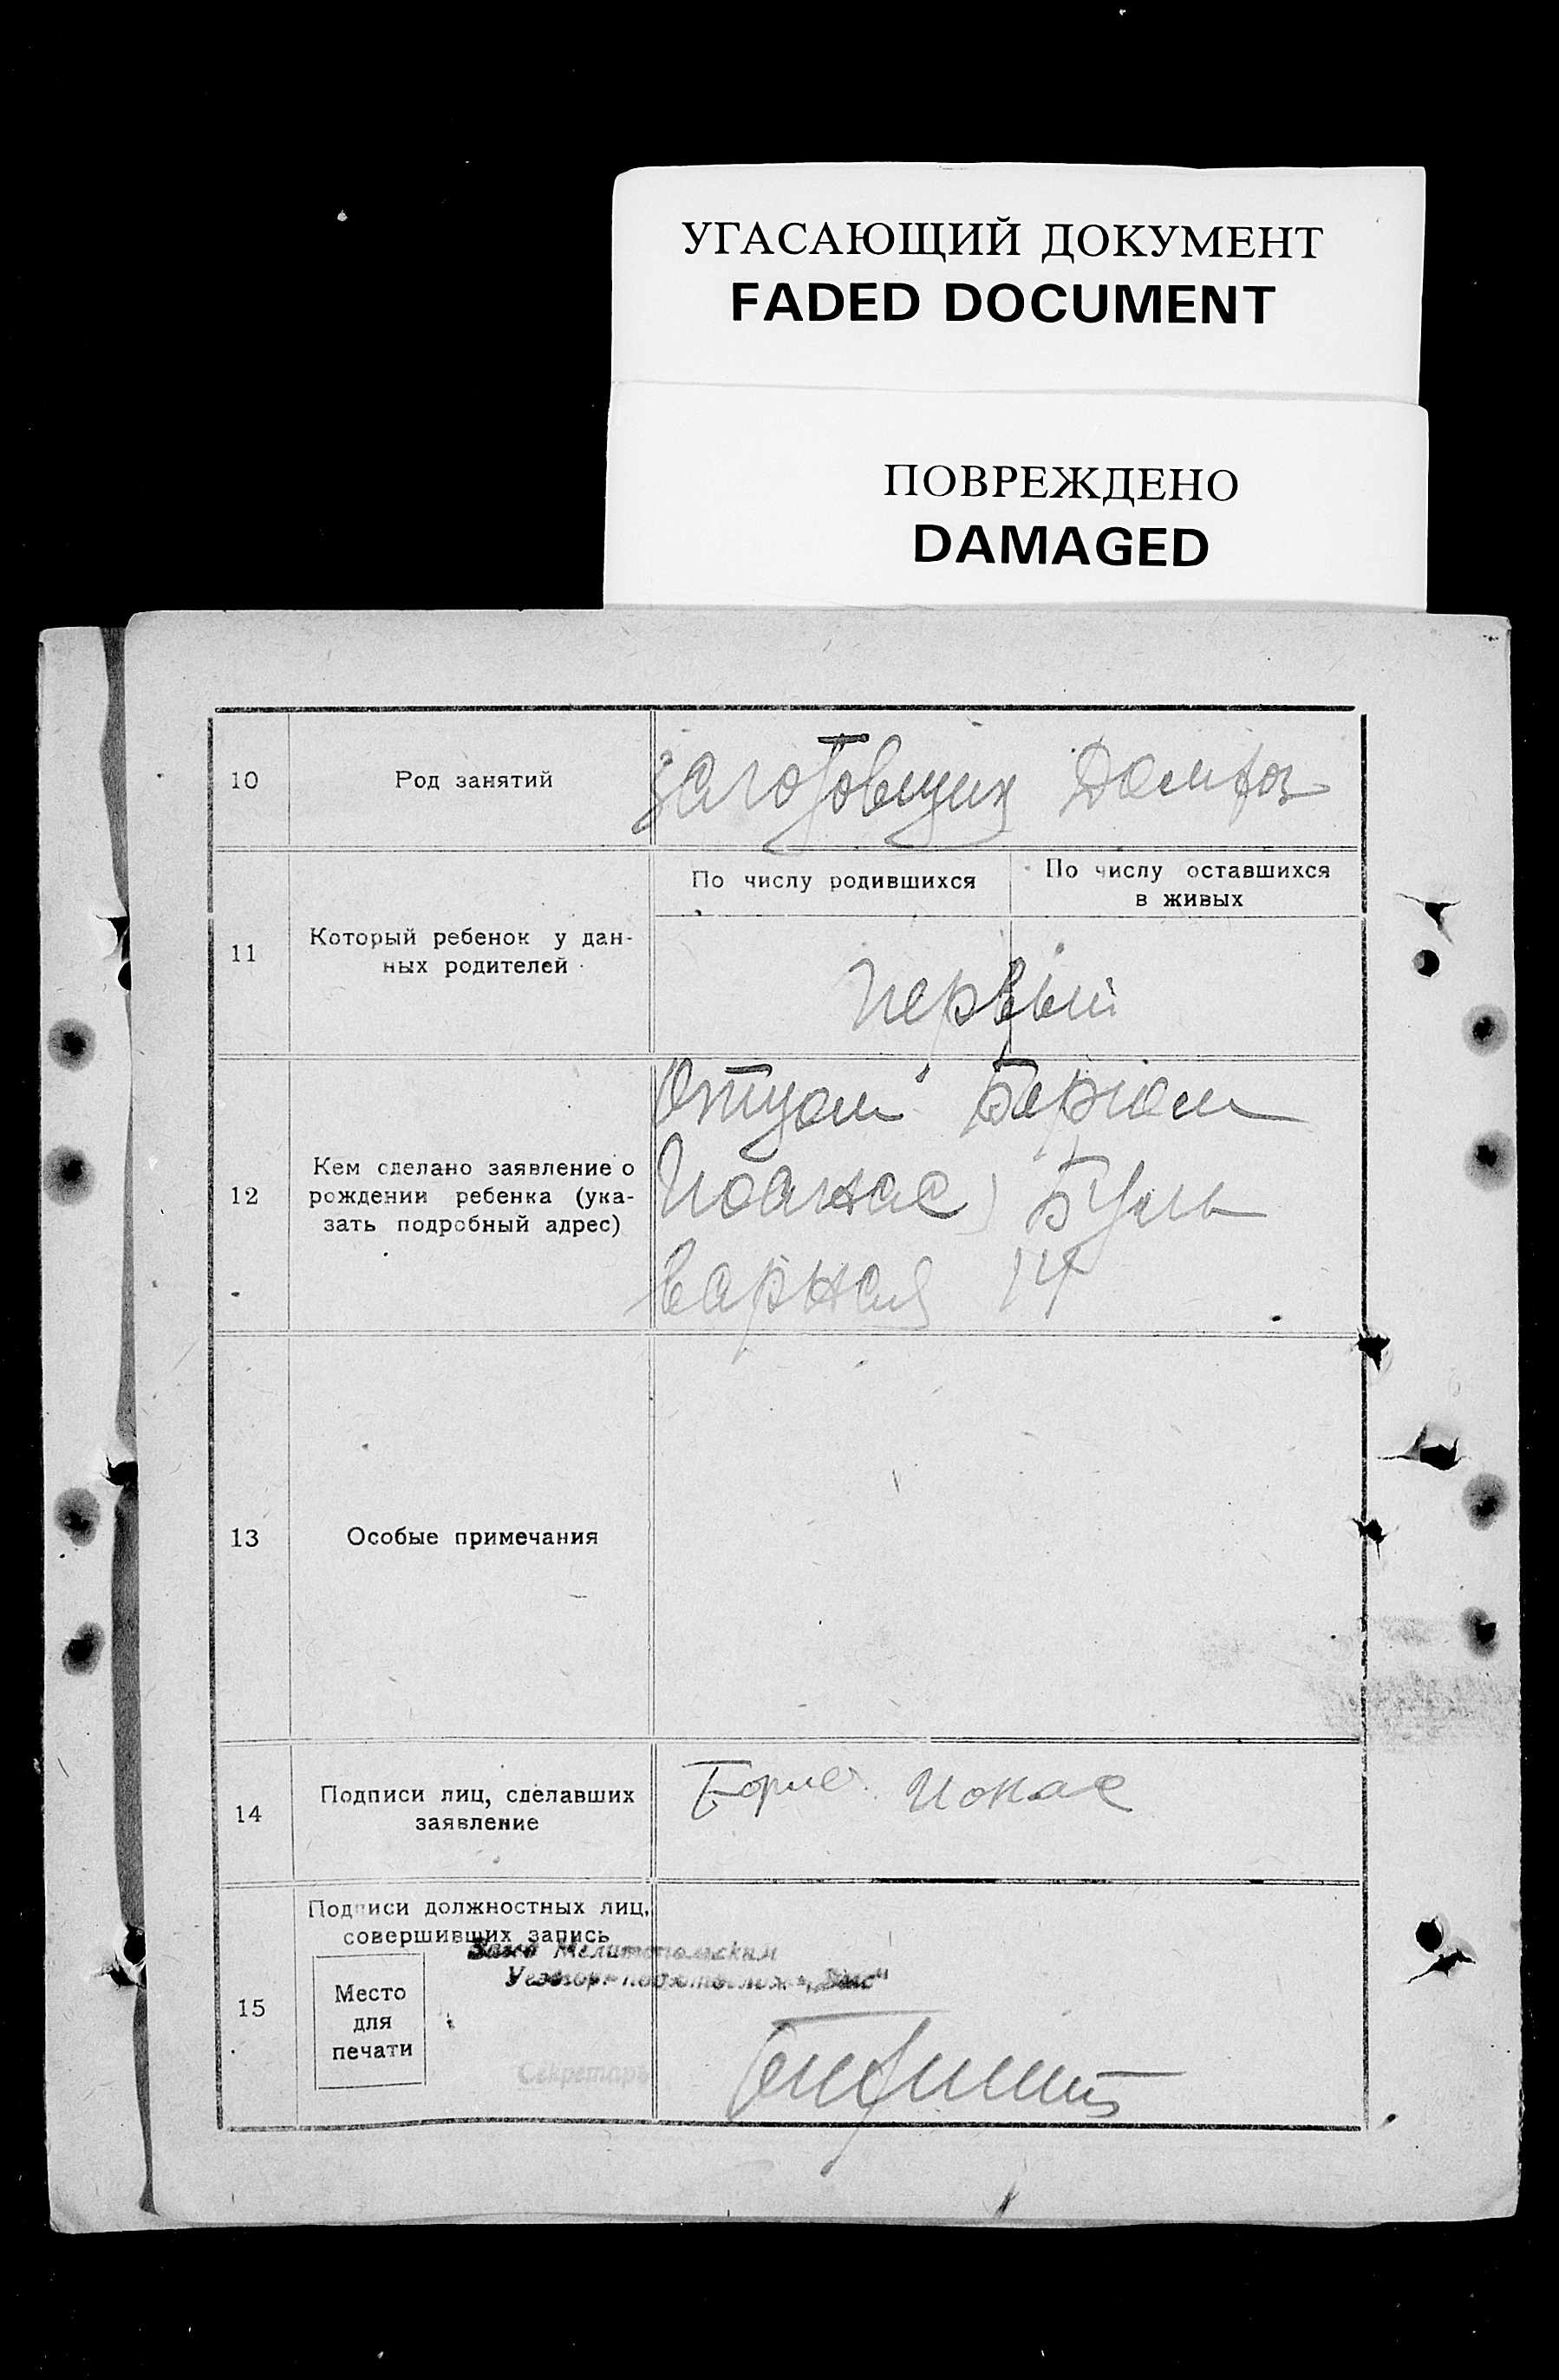 УГАСАЮЩИЙ ДОКУМЕНТ
FADED DOCUMENT
ПОВРЕЖДЕНО
DAMAGED
10 Род занятий
заготовщик
По числу родившихся
По числу оставшихся
в живых
11 Который ребенок у дан-
ных родителей
первый
12 Кем сделано заявление о
рождении ребенка (ука-
зать подробный адрес)
Отцом
Буль
варная 14
13 Особые примечания
14 Подписи лиц, сделавших
заявление
Борис Йонас
15 Подписи должностных лиц,
совершивших запись
Завед Мелитопольским
Место
для
печати
Секретарь